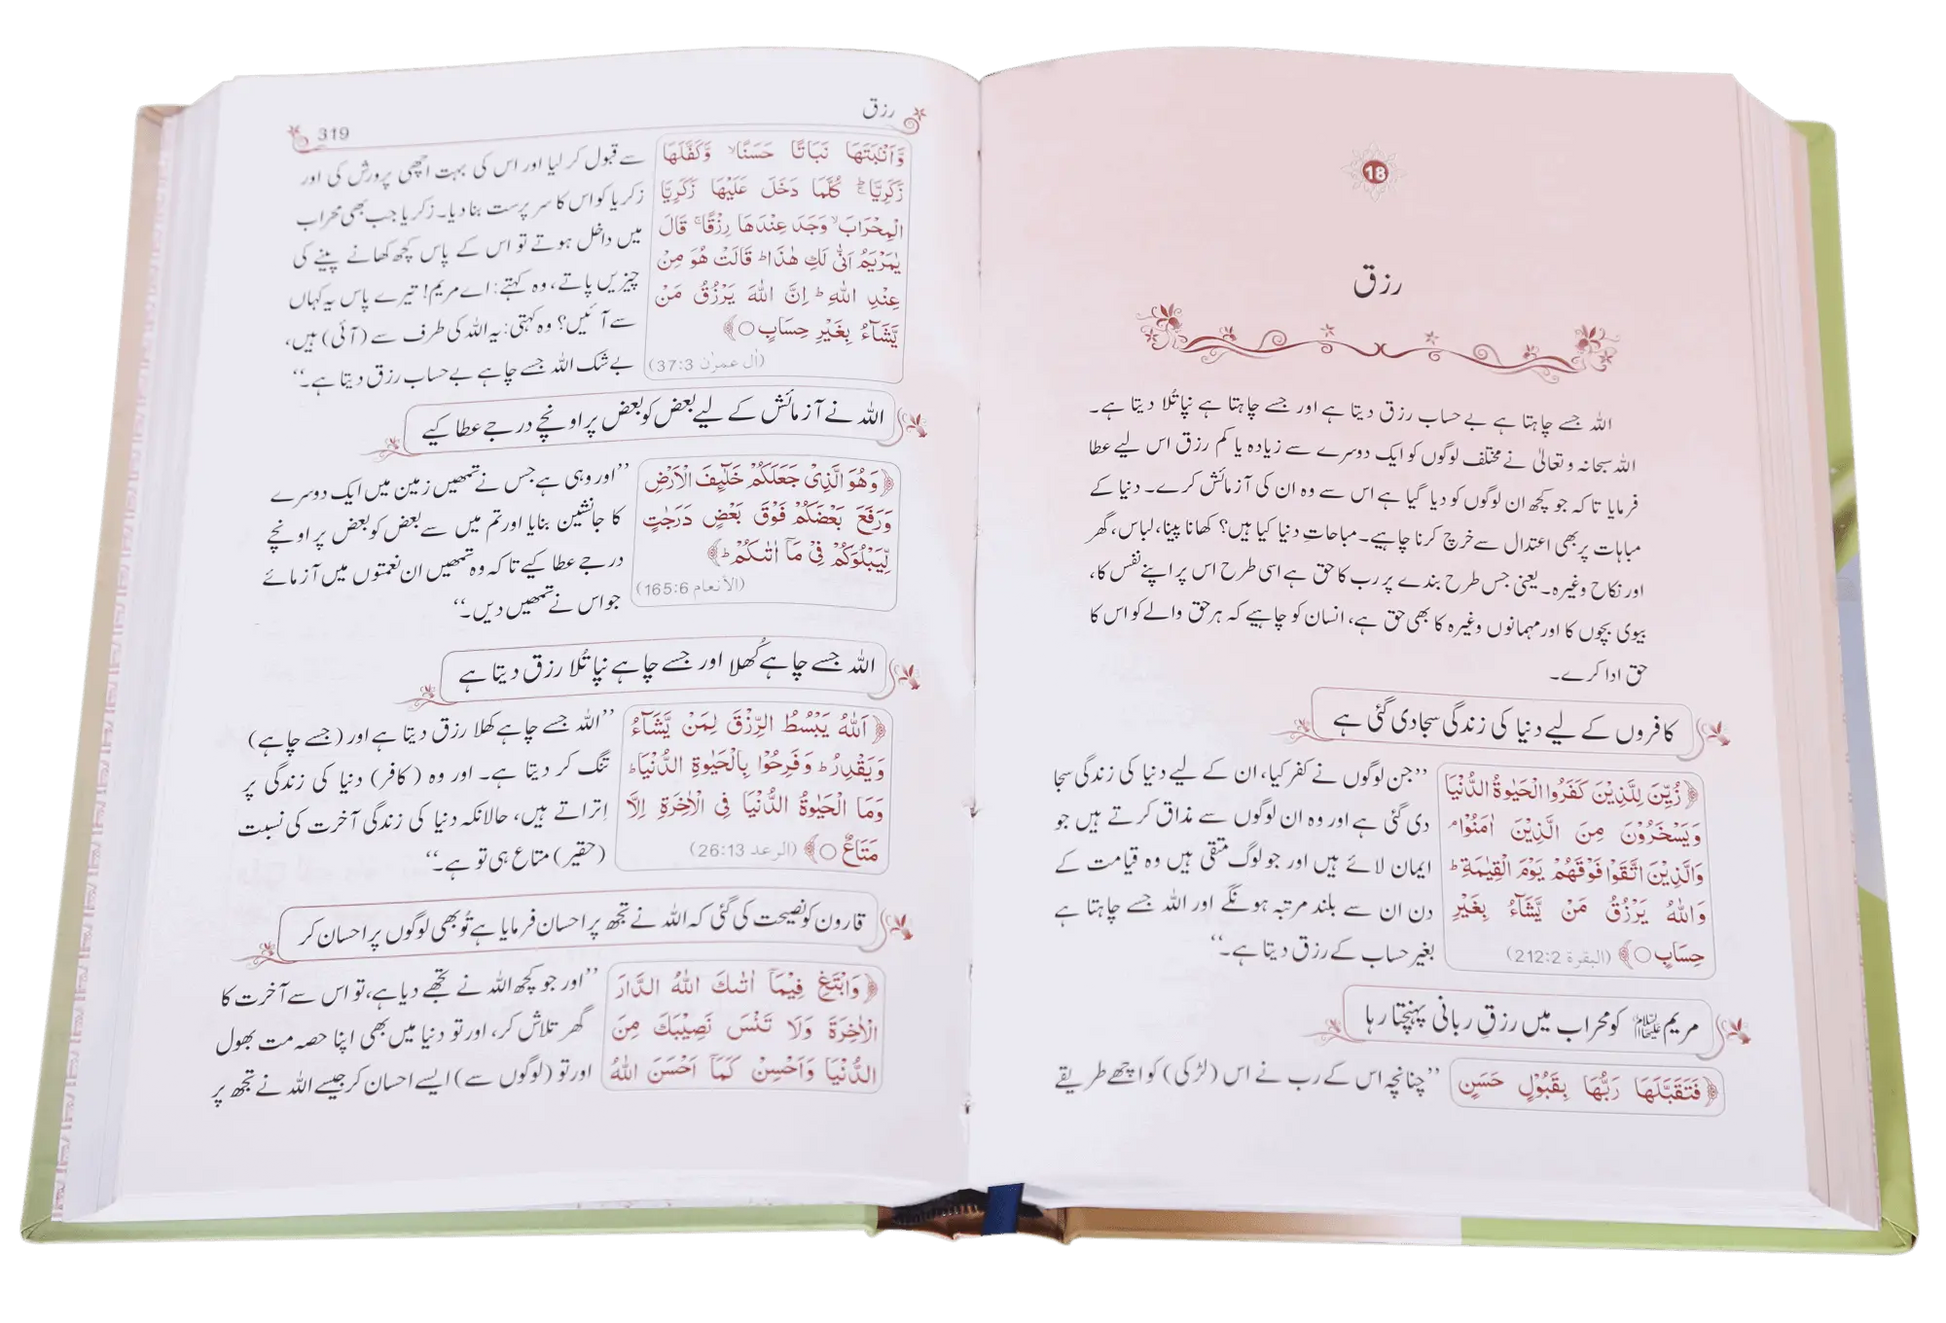 18
رزق
اللہ جسے چاہتا ہے بے حساب رزق دیتا ہے اور جسے چاہتا ہے نپا تُلا دیتا ہے۔
اللہ سبحانہ و تعالیٰ نے مختلف لوگوں کو ایک دوسرے سے زیادہ یا کم رزق اس لیے عطا
فرمایا تا کہ جو کچھ ان لوگوں کو دیا گیا ہے اس سے وہ ان کی آزمائش کرے۔ دنیا کے
مباہات پر بھی اعتدال سے خرچ کرنا چاہیے۔ مباحاتِ دنیا کیا ہیں؟ کھانا پینا، لباس، گھر
اور نکاح وغیرہ۔ یعنی جس طرح بندے پر رب کا حق ہے اسی طرح اس پر اپنے نفس کا،
بیوی بچوں کا اور مہمانوں وغیرہ کا بھی حق ہے، انسان کو چاہیے کہ ہر حق والے کو اس کا
حق ادا کرے۔
کافروں کے لیے دنیا کی زندگی سجا دی گئی ہے
﴿زُيِّنَ لِلَّذِيْنَ كَفَرُوا الْحَيٰوةُ الدُّنْيَا
وَيَسْخَرُوْنَ مِنَ الَّذِيْنَ اٰمَنُوْا ۘ
وَالَّذِيْنَ اتَّقَوْا فَوْقَهُمْ يَوْمَ الْقِيٰمَةِ ؕ
وَاللّٰهُ يَرْزُقُ مَنْ يَّشَآءُ بِغَيْرِ
حِسَابٍ ○﴾ (البقرة 212:2)
”جن لوگوں نے کفر کیا، ان کے لیے دنیا کی زندگی سجا
دی گئی ہے اور وہ ان لوگوں سے مذاق کرتے ہیں جو
ایمان لائے ہیں اور جو لوگ متقی ہیں وہ قیامت کے
دن ان سے بلند مرتبہ ہونگے اور اللہ جسے چاہتا ہے
بغیر حساب کے رزق دیتا ہے۔“
مریم علیہا السلام کو محراب میں رزقِ ربانی پہنچتا رہا
﴿فَتَقَبَّلَهَا رَبُّهَا بِقَبُوْلٍ حَسَنٍ
”چنانچہ اس کے رب نے اس (لڑکی) کو اچھے طریقے
رزق
319
وَّاَنْۢبَتَهَا نَبَاتًا حَسَنًا ۙ وَّكَفَّلَهَا
زَكَرِيَّا ۚؕ كُلَّمَا دَخَلَ عَلَيْهَا زَكَرِيَّا
الْمِحْرَابَ ۙ وَجَدَ عِنْدَهَا رِزْقًا ۚ قَالَ
يٰمَرْيَمُ اَنّٰى لَكِ هٰذَا ؕ قَالَتْ هُوَ مِنْ
عِنْدِ اللّٰهِ ؕ اِنَّ اللّٰهَ يَرْزُقُ مَنْ
يَّشَآءُ بِغَيْرِ حِسَابٍ ○﴾
(اٰل عمرٰن 37:3)
سے قبول کر لیا اور اس کی بہت اچھی پرورش کی اور
زکریا کو اس کا سرپرست بنا دیا۔ زکریا جب بھی محراب
میں داخل ہوتے تو اس کے پاس کچھ کھانے پینے کی
چیزیں پاتے، وہ کہتے: اے مریم! تیرے پاس یہ کہاں
سے آئیں؟ وہ کہتی: یہ اللہ کی طرف سے (آئی) ہیں،
بے شک اللہ جسے چاہے بے حساب رزق دیتا ہے۔“
اللہ نے آزمائش کے لیے بعض کو بعض پر اونچے درجے عطا کیے
﴿وَهُوَ الَّذِيْ جَعَلَكُمْ خَلٰٓىِٕفَ الْاَرْضِ
وَرَفَعَ بَعْضَكُمْ فَوْقَ بَعْضٍ دَرَجٰتٍ
لِّيَبْلُوَكُمْ فِيْ مَآ اٰتٰىكُمْ ؕ﴾
(الأنعام 165:6)
”اور وہی ہے جس نے تمھیں زمین میں ایک دوسرے
کا جانشین بنایا اور تم میں سے بعض کو بعض پر اونچے
درجے عطا کیے تاکہ وہ تمھیں ان نعمتوں میں آزمائے
جو اس نے تمھیں دیں۔“
اللہ جسے چاہے کُھلا اور جسے چاہے نپا تُلا رزق دیتا ہے
﴿اَللّٰهُ يَبْسُطُ الرِّزْقَ لِمَنْ يَّشَآءُ
وَيَقْدِرُ ؕ وَفَرِحُوْا بِالْحَيٰوةِ الدُّنْيَا ؕ
وَمَا الْحَيٰوةُ الدُّنْيَا فِي الْاٰخِرَةِ اِلَّا
مَتَاعٌ ○﴾ (الرعد 26:13)
”اللہ جسے چاہے کھلا رزق دیتا ہے اور (جسے چاہے)
تنگ کر دیتا ہے۔ اور وہ (کافر) دنیا کی زندگی پر
اِتراتے ہیں، حالانکہ دنیا کی زندگی آخرت کی نسبت
(حقیر) متاع ہی تو ہے۔“
قارون کو نصیحت کی گئی کہ اللہ نے تجھ پر احسان فرمایا ہے تُو بھی لوگوں پر احسان کر
﴿وَابْتَغِ فِيْمَآ اٰتٰىكَ اللّٰهُ الدَّارَ
الْاٰخِرَةَ وَلَا تَنْسَ نَصِيْبَكَ مِنَ
الدُّنْيَا وَاَحْسِنْ كَمَآ اَحْسَنَ اللّٰهُ
”اور جو کچھ اللہ نے تجھے دیا ہے، تو اس سے آخرت کا
گھر تلاش کر، اور تو دنیا میں بھی اپنا حصہ مت بھول
اور تو (لوگوں سے) ایسے احسان کر جیسے اللہ نے تجھ پر